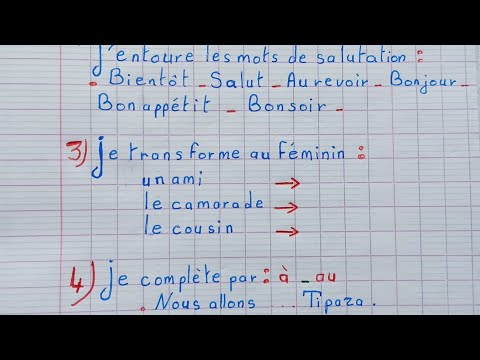 j'entoure les mots de salutation :
. Bientôt _ Salut _ Au revoir _ Bonjour _
Bon appétit _ Bonsoir _
3) je transforme au féminin :
un ami →
le camarade →
le cousin →
4) je complète par : à _ au
. Nous allons .... Tipaza .